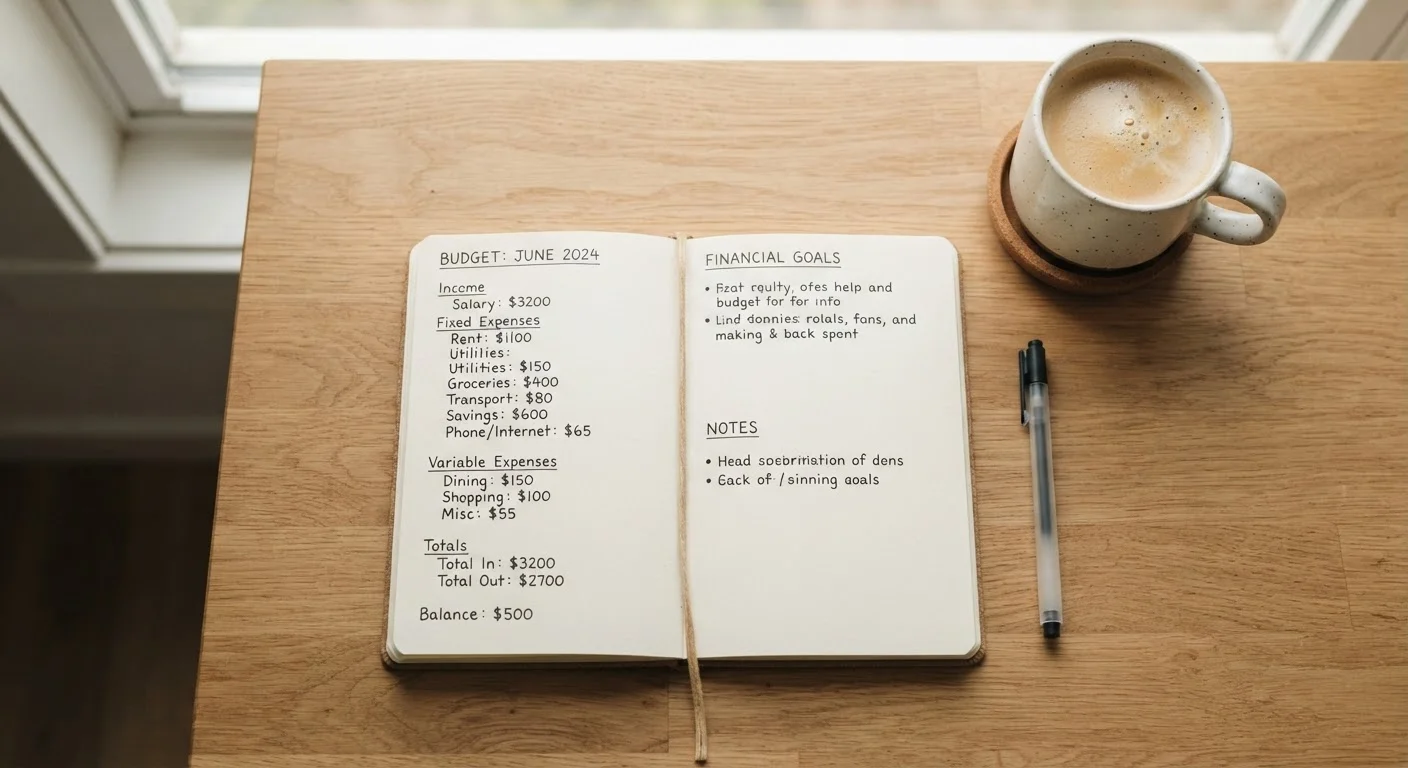 BUDGET: JUNE 2024
Income
Salary: $3200
Fixed Expenses
Rent: $1100
Utilities:
Utilities: $150
Groceries: $400
Transport: $80
Savings: $600
Phone/Internet: $65
Variable Expenses
Dining: $150
Shopping: $100
Misc: $55
Totals
Total In: $3200
Total Out: $2700
Balance: $500
FINANCIAL GOALS
• help and
budget for for info
• fans, and
making & back spent
NOTES
• Head of dens
• of